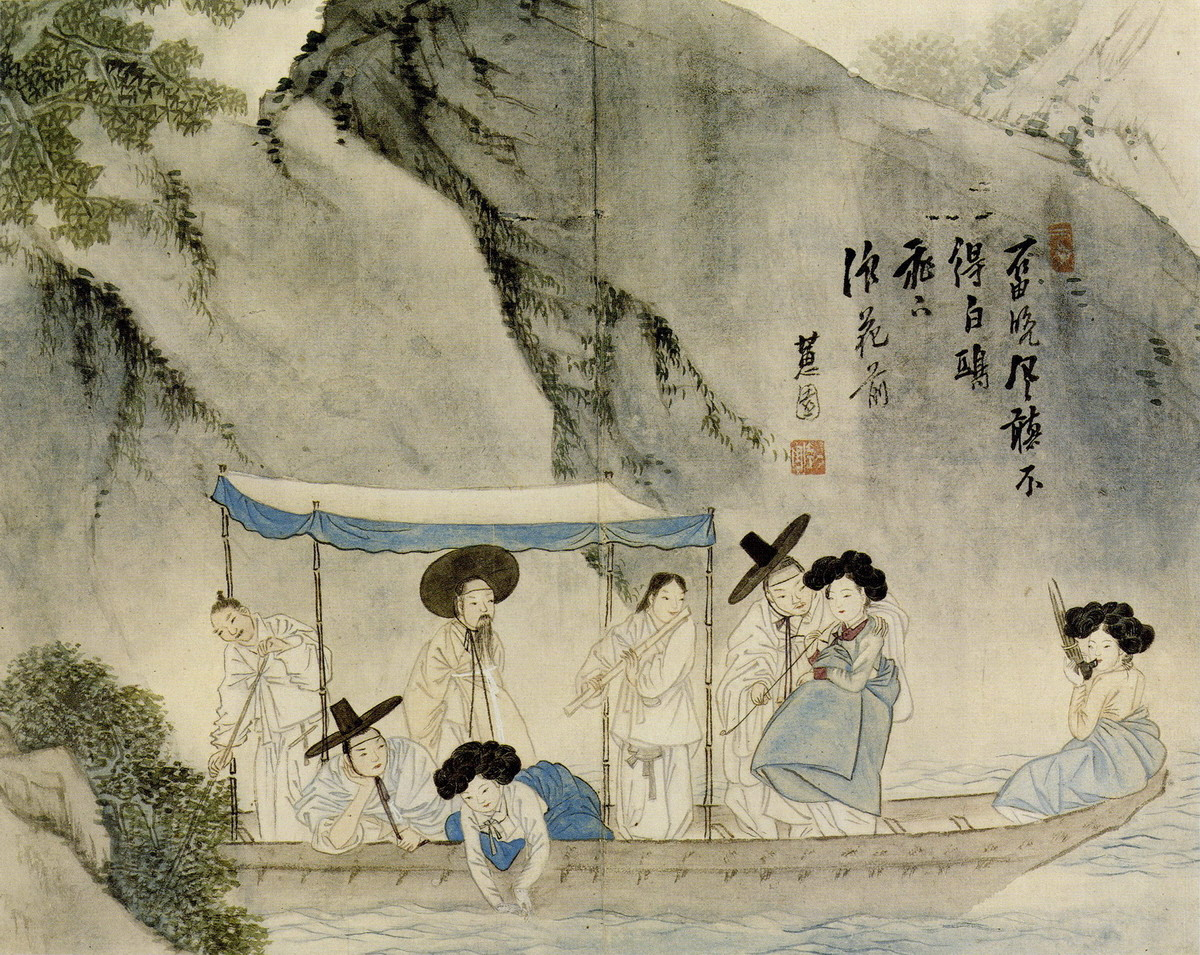 一笛晩風聽不
得白鷗
飛下
浪花前
蕙園